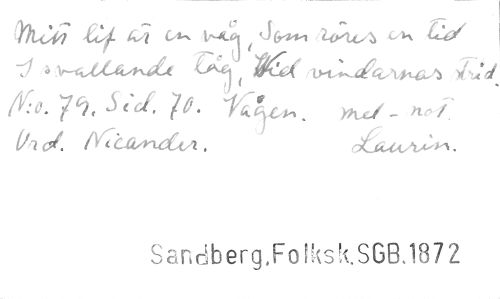 Mitt lif är en våg, Som röres en tid
I svallande tåg, Wid vindarnas strid.
N:o. 79. Sid. 70. Vågen. mel-not.
Ord. Nicander. Laurin.
Sandberg, Folksk. SGB. 1872